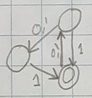 0,
1
0,
1